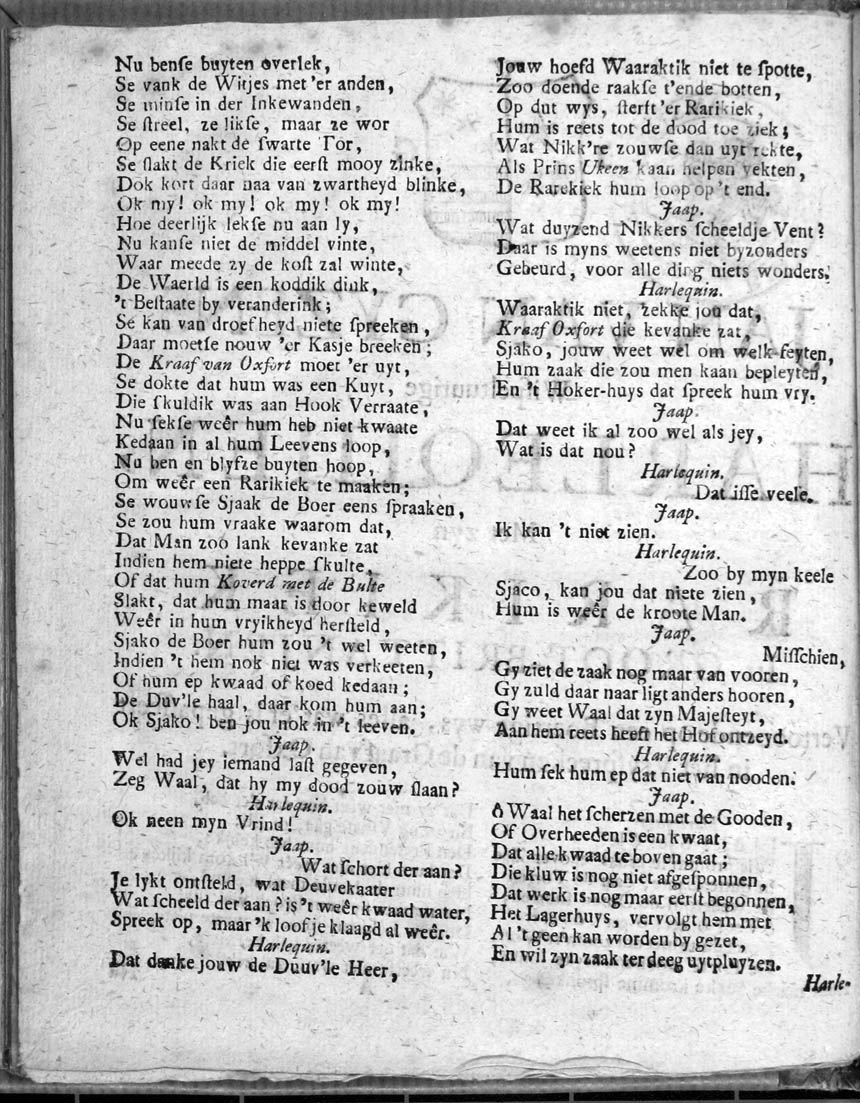 Nu benſe buyten overlek,
Se vank de Witjes met 'er anden,
Se minſe in der Inkewanden,
Se ſtreel, ze likſe, maar ze wor
Op eene nakt de ſwarte Tor,
Se ſlakt de Kriek die eerſt mooy zinke,
Dok kort daar naa van zwartheyd blinke,
Ok my! ok my! ok my! ok my!
Hoe deerlijk lekſe nu aan ly,
Nu kanſe niet de middel vinte,
Waar meede zy de koſt zal winte,
De Waerld is een koddik dink,
't Beſtaate by veranderink;
Se kan van droefheyd niete ſpreeken,
Daar moetſe nouw 'er Kasje breeken;
De Kraaf van Oxfort moet 'er uyt,
Se dokte dat hum was een Kuyt,
Die ſkuldik was aan Hook Verraate,
Nu ſekſe weêr hum heb niet kwaate
Kedaan in al hum Leevens loop,
Nu ben en blyfze buyten hoop,
Om weêr een Rarikiek te maaken;
Se wouwſe Sjaak de Boer eens ſpraaken,
Se zou hum vraake waarom dat,
Dat Man zoo lank kevanke zat
Indien hem niete heppe ſkulte,
Of dat hum Koverd met de Bulte
Slakt, dat hum maar is door keweld
Weêr in hum vryikheyd herſteld,
Sjako de Boer hum zou 't wel weeten,
Indien 't hem nok niet was verkeeten,
Of hum ep kwaad of koed kedaan;
De Duv'le haal, daar kom hum aan;
Ok Sjako! ben jou nok in 't leeven.
Jaap.
Wel had jey iemand laſt gegeven,
Zeg Waal, dat hy my dood zouw ſlaan?
Harlequin.
Ok neen myn Vrind!
Jaap.
Wat ſchort der aan?
Je lykt ontſteld, wat Deuvekaater
Wat ſcheeld der aan? is 't weêr kwaad water,
Spreek op, maar 'k loof je klaagd al weêr.
Harlequin.
Dat danke jouw de Duuv'le Heer,
Jouw hoefd Waaraktik niet te ſpotte,
Zoo doende raakſe t'ende botten,
Op dut wys, ſterft 'er Rarikiek,
Hum is reets tot de dood toe ziek;
Wat Nikk're zouwſe dan uyt rekte,
Als Prins Ukeen kaan helpen vekten,
De Rarekiek hum loop op 't end.
Jaap.
Wat duyzend Nikkers ſcheeldje Vent?
Daar is myns weetens niet byzonders
Gebeurd, voor alle ding niets wonders.
Harlequin.
Waaraktik niet, zekke jou dat,
Kraaf Oxfort die kevanke zat,
Sjako, jouw weet wel om welk feyten,
Hum zaak die zou men kaan bepleyten,
En 't Hoker-huys dat ſpreek hum vry.
Jaap.
Dat weet ik al zoo wel als jey,
Wat is dat nou?
Harlequin.
Dat iſſe veele.
Jaap.
Ik kan 't niet zien.
Harlequin.
Zoo by myn keele
Sjaco, kan jou dat niete zien,
Hum is weêr de kroote Man.
Jaap.
Miſſchien,
Gy ziet de zaak nog maar van vooren,
Gy zuld daar naar ligt anders hooren,
Gy weet Waal dat zyn Majeſteyt,
Aan hem reets heeft het Hof ontzeyd.
Harlequin.
Hum ſek hum ep dat niet van nooden.
Jaap.
ô Waal het ſcherzen met de Gooden,
Of Overheeden is een kwaat,
Dat alle kwaad te boven gaat;
Die kluw is nog niet afgeſponnen,
Dat werk is nog maar eerſt begonnen,
Het Lagerhuys, vervolgt hem met
Al 't geen kan worden by gezet,
En wil zyn zaak ter deeg uytpluyzen.
Harle-